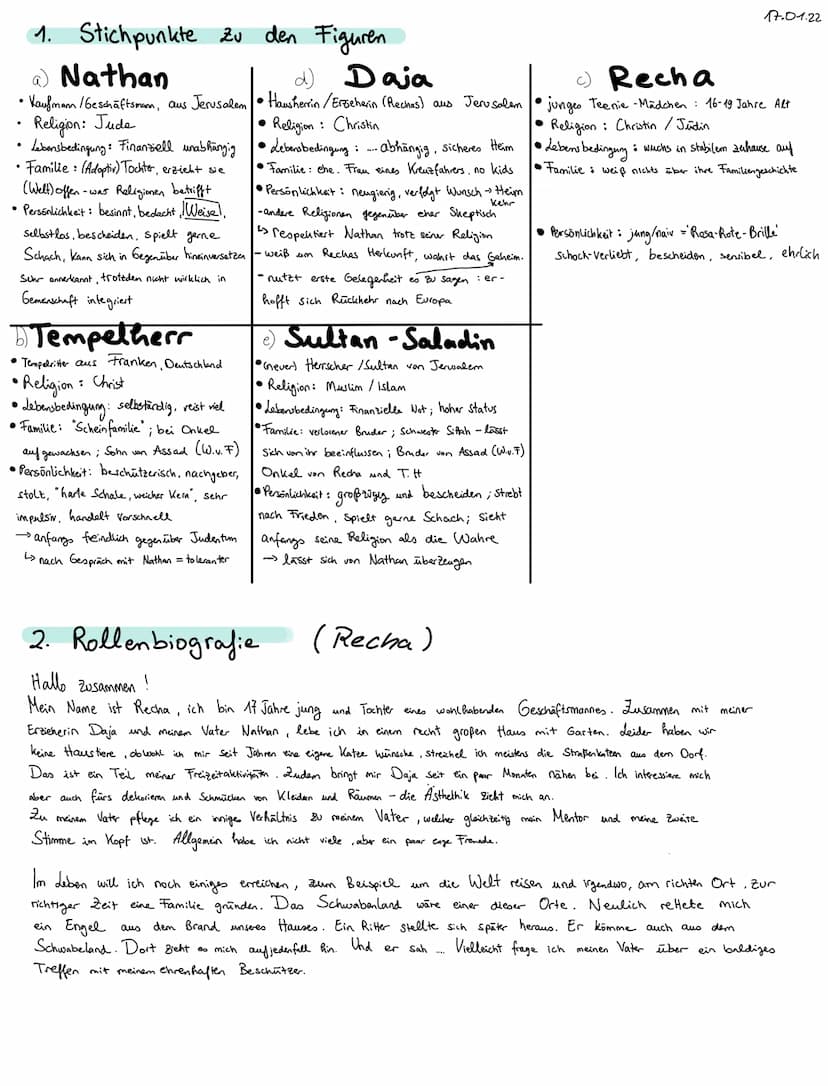 17.01.22
1. Stichpunkte zu den Figuren
a) Nathan
• Kaufmann/Geschäftsmann, aus Jerusalem
• Religion: Jude
• Lebensbedingung: Finanziell unabhängig
• Familie: (Adoptiv) Tochter, erzieht sie
(Welt)offen - was Religionen betrifft
• Persönlichkeit: besinnt, bedacht, Weise,
selbstlos, bescheiden, spielt gerne
Schach, kann sich in Gegenüber hineinversetzen
Sehr anerkannt, trotzdem nicht wirklich in
Gemeinschaft integriert
d) Daja
• Hausherrin/Erzieherin (Rechas) aus Jerusalem
• Religion: Christin
• Lebensbedingung: .... abhängig, sicheres Heim
• Familie: ehe. Frau eines Kreuzfahrers, no kids
• Persönlichkeit: neugierig, verfolgt Wunsch → Heim
kehr
- andere Religionen gegenüber eher Skeptisch
↳ respektiert Nathan trotz seiner Religion
- weiß um Rechas Herkunft, wahrt das Geheim.
- nutzt erste Gelegenheit es zu sagen: er-
hofft sich Rückkehr nach Europa
c) Recha
• junges Teenie-Mädchen: 16-19 Jahre Alt
• Religion: Christin / Jüdin
• Lebensbedingung: wuchs in stabilem zuhause auf
• Familie: weiß nichts über ihre Familiengeschichte
• Persönlichkeit: jung/naiv = 'Rosa-Rote-Brille'
schock-verliebt, bescheiden, sensibel, ehrlich
b) Tempelherr
• Tempelritter aus Franken, Deutschland
• Religion: Christ
• Lebensbedingung: selbständig, reist viel
• Familie: "Scheinfamilie"; bei Onkel
aufgewachsen; Sohn von Assad (W.v.F)
• Persönlichkeit: beschützerisch, nachgeber,
stolz, "harte Schale, weicher Kern", sehr
impulsiv, handelt vorschnell
→ anfangs feindlich gegenüber Judentum
↳ nach Gespräch mit Nathan = toleranter
e) Sultan - Saladin
• (neuer) Herrscher / Sultan von Jerusalem
• Religion: Muslim / Islam
• Lebensbedingung: Finanzielle Not; hoher Status
• Familie: verlorener Bruder; Schwester Sittah - lässt
sich von ihr beeinflussen; Bruder von Assad (W.v.F)
Onkel von Recha und T.H
• Persönlichkeit: großzügig und bescheiden; strebt
nach Frieden, spielt gerne Schach; sieht
anfangs seine Religion als die Wahre
→ lässt sich von Nathan überzeugen
2. Rollenbiografie (Recha)
Hallo zusammen!
Mein Name ist Recha, ich bin 17 Jahre jung und Tochter eines wohlhabenden Geschäftsmannes. Zusammen mit meiner
Erzieherin Daja und meinem Vater Nathan, lebe ich in einem recht großen Haus mit Garten. Leider haben wir
keine Haustiere, obwohl ich mir seit Jahren eine eigene Katze wünsche, streichel ich meistens die Straßenkatzen aus dem Dorf.
Das ist ein Teil meiner Freizeitaktivitäten. Zudem bringt mir Daja seit ein paar Monaten nähen bei. Ich interessiere mich
aber auch fürs dekorieren und Schmücken von Kleidern und Räumen - die Ästhethik zieht mich an.
Zu meinem Vater pflege ich ein inniges Verhältnis zu meinem Vater, welcher gleichzeitig mein Mentor und meine zweite
Stimme im Kopf ist. Allgemein habe ich nicht viele, aber ein paar enge Freunde.
Im Leben will ich noch einiges erreichen, zum Beispiel um die Welt reisen und irgendwo, am richten Ort, zur
richtiger Zeit eine Familie gründen. Das Schwabenland wäre einer dieser Orte. Neulich rettete mich
ein Engel aus dem Brand unseres Hauses. Ein Ritter stellte sich später heraus. Er komme auch aus dem
Schwabeland. Dort zieht es mich aufjedenfall hin. Und er sah ... Vielleicht frage ich meinen Vater über ein baldiges
Treffen mit meinem ehrenhaften Beschützer.